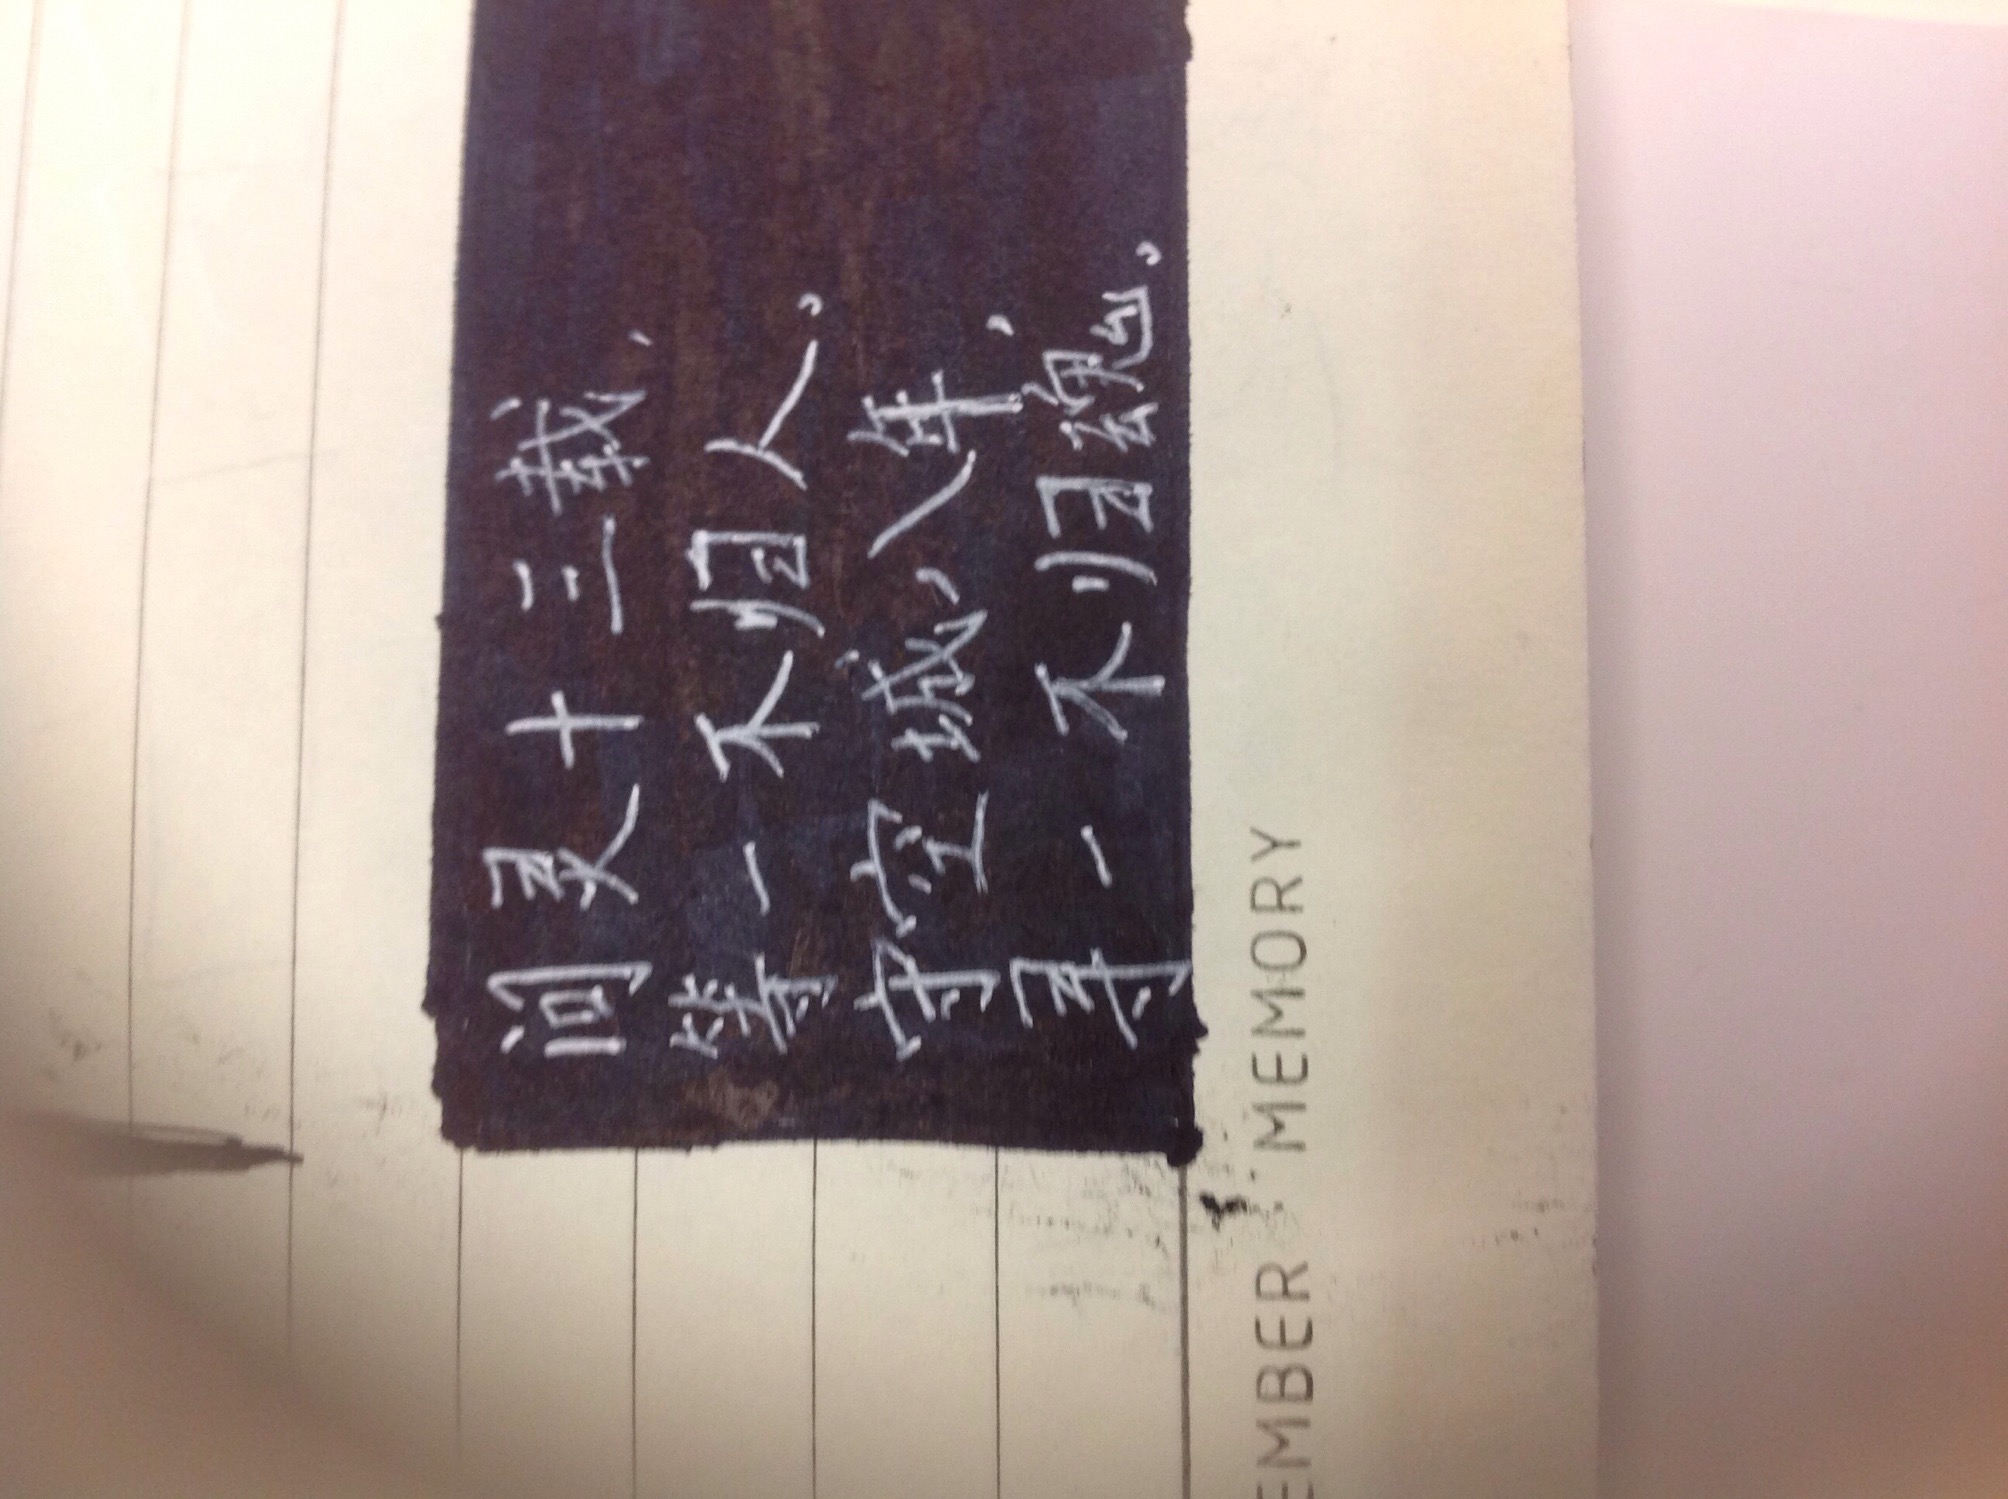 问灵十三载，
等一不归人。
守空城八年，
寻一不归魂。
EMBER : MEMORY